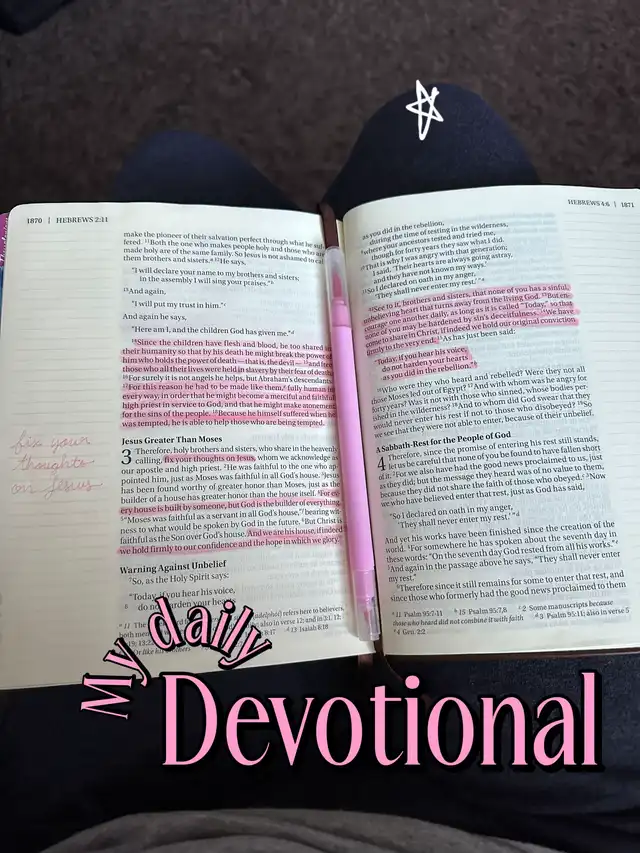 1870 | HEBREWS 2:11
make the pioneer of their salvation perfect through what he suf-
fered. 11Both the one who makes people holy and those who are
made holy are of the same family. So Jesus is not ashamed to call
them brothers and sisters. 12He says,
"I will declare your name to my brothers and sisters;
in the assembly I will sing your praises."
13And again,
"I will put my trust in him."
And again he says,
"Here am I, and the children God has given me."
14Since the children have flesh and blood, he too shared in
their humanity so that by his death he might break the power of
him who holds the power of death—that is, the devil—15and free
those who all their lives were held in slavery by their fear of death.
16For surely it is not angels he helps, but Abraham's descendants.
17For this reason he had to be made like them, fully human in
every way, in order that he might become a merciful and faithful
high priest in service to God, and that he might make atonement
for the sins of the people. 18Because he himself suffered when he
was tempted, he is able to help those who are being tempted.
fix your
thoughts
on Jesus
Jesus Greater Than Moses
3 Therefore, holy brothers and sisters, who share in the heavenly
calling, fix your thoughts on Jesus, whom we acknowledge as
our apostle and high priest. 2He was faithful to the one who ap-
pointed him, just as Moses was faithful in all God's house. 3Jesus
has been found worthy of greater honor than Moses, just as the
builder of a house has greater honor than the house itself. 4For ev-
ery house is built by someone, but God is the builder of everything.
5"Moses was faithful as a servant in all God's house," bearing wit-
ness to what would be spoken by God in the future. 6But Christ is
faithful as the Son over God's house. And we are his house, if indeed
we hold firmly to our confidence and the hope in which we glory.
Warning Against Unbelief
7So, as the Holy Spirit says:
"Today, if you hear his voice,
8 do not harden your hearts
HEBREWS 4:6 | 1871
as you did in the rebellion,
during the time of testing in the wilderness,
9where your ancestors tested and tried me,
though for forty years they saw what I did.
10That is why I was angry with that generation;
I said, 'Their hearts are always going astray,
and they have not known my ways.'
11So I declared on oath in my anger,
'They shall never enter my rest.'"
12See to it, brothers and sisters, that none of you has a sinful,
unbelieving heart that turns away from the living God. 13But en-
courage one another daily, as long as it is called "Today," so that
none of you may be hardened by sin's deceitfulness. 14We have
come to share in Christ, if indeed we hold our original conviction
firmly to the very end. 15As has just been said:
"Today, if you hear his voice,
do not harden your hearts
as you did in the rebellion."
16Who were they who heard and rebelled? Were they not all
those Moses led out of Egypt? 17And with whom was he angry for
forty years? Was it not with those who sinned, whose bodies per-
ished in the wilderness? 18And to whom did God swear that they
would never enter his rest if not to those who disobeyed? 19So
we see that they were not able to enter, because of their unbelief.
A Sabbath-Rest for the People of God
4 Therefore, since the promise of entering his rest still stands,
let us be careful that none of you be found to have fallen short
of it. 2For we also have had the good news proclaimed to us, just
as they did; but the message they heard was of no value to them,
because they did not share the faith of those who obeyed. 3Now
we who have believed enter that rest, just as God has said,
"So I declared on oath in my anger,
'They shall never enter my rest.'"
And yet his works have been finished since the creation of the
world. 4For somewhere he has spoken about the seventh day in
these words: "On the seventh day God rested from all his works."
5And again in the passage above he says, "They shall never enter
my rest."
6Therefore since it still remains for some to enter that rest, and
since those who formerly had the good news proclaimed to them
11 Psalm 95:7-11 15 Psalm 95:7,8 2 Some manuscripts because
those who heard did not combine it with faith 3 Psalm 95:11; also in verse 5
4 Gen. 2:2
My daily
Devotional